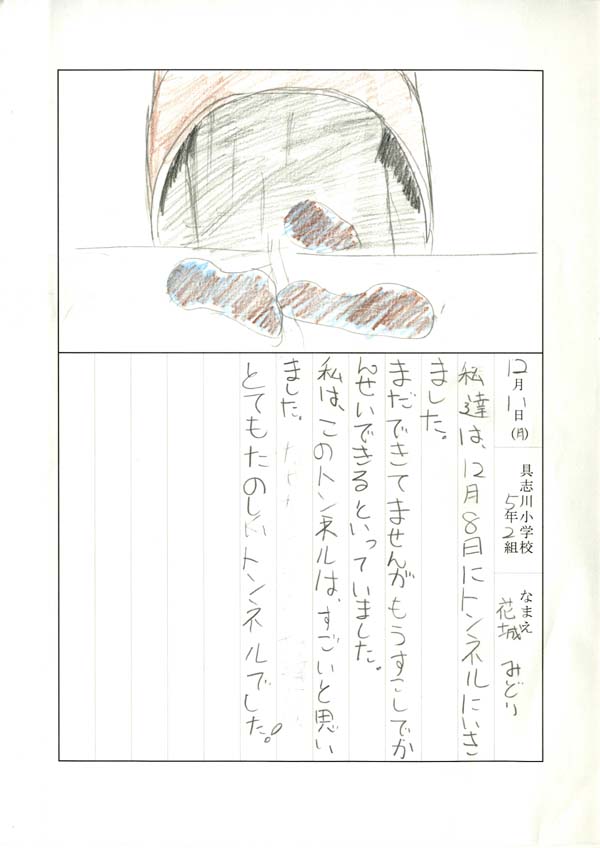 12月11日(月)
具志川小学校
5年2組
なまえ
花城 みどり
私達は、12月8日にトンネルにいき
ました。
まだできてませんがもうすこしでか
んせいできるといっていました。
私は、このトンネルは、すごいと思い
ました。
とてもたのしいトンネルでした。